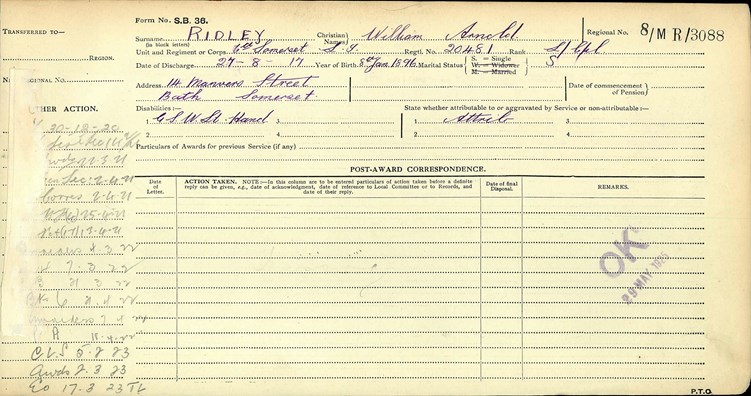 Form No. S.B. 36.
TRANSFERRED TO—
REGION.
REGIONAL NO.
OTHER ACTION.
Surname (in block letters) RIDLEY
Christian Names) William Arnold
Regional No. 8/MR/3088
Unit and Regiment or Corps 6th Somerset L.I.
Regtl. No. 20481 Rank L/Cpl
Date of Discharge 27-8-17 Year of Birth 8th Jan 1896 Marital Status
S. = Single
W. = Widower
M. = Married
S
Address 14 Manvers Street
Bath Somerset.
Date of commencement of Pension)
Disabilities:—
1 G S W Lt Hand 3
2 4
State whether attributable to or aggravated by Service or non-attributable:—
1 Attrib 3
2 4
Particulars of Awards for previous Service (if any)
POST-AWARD CORRESPONDENCE.
Date of Letter.
ACTION TAKEN. NOTE:—In this column are to be entered particulars of action taken before a definite reply can be given, e.g., date of acknowledgment, date of reference to Local Committee or to Records, and date of their reply.
Date of final Disposal.
REMARKS.
OK
29 MAY 1923
30-12-20
2-4-21
2-4-21
25-4-21
12-4-21
4.3.22
7.3.22
21.3.22
6 2.4.22
7.4.22
A 18.4.22
C.L.S 5.2.23
Awds 2.3.23
EO 17.3.23
P.T.O.